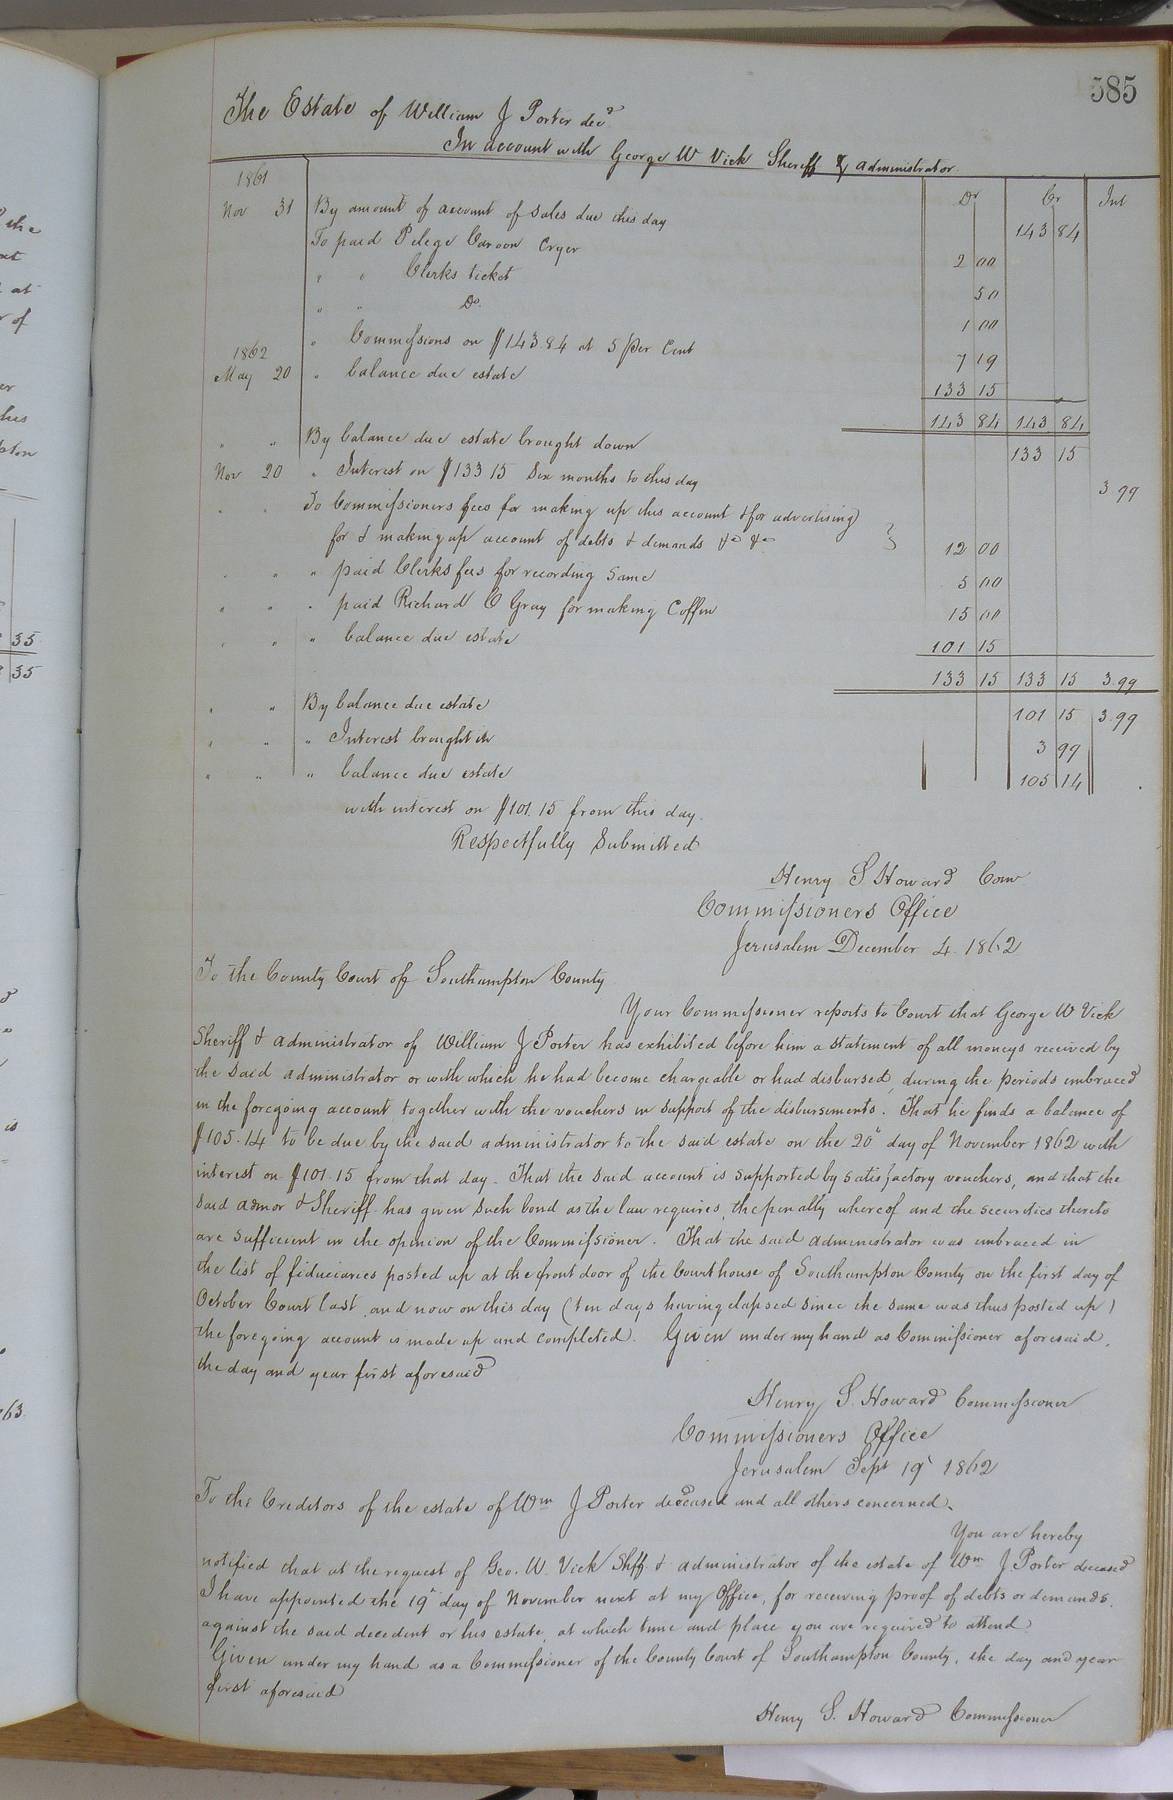 585
The Estate of William J Porter decd
In account with George W Vick Sheriff & administrator
1861 Dr Cr Int
Nov 31 By amount of account of sales due this day 143 84
To paid Pelege Cryer 2 00
" " Clerks ticket 50
" " Do. 1 00
" Commissions on $143.84 at 5 per Cent 7 19
1862
May 20 " balance due estate 133 15
143 84 143 84
" " By balance due estate brought down 133 15
Nov 20 " Interest on $133 15 Six months to this day 3 99
" " To Commissioners fees for making up this account & for advertising
for & making up account of debts & demands &c &c 12 00
" " " paid Clerks fees for recording same 5 00
" " " paid Richard O Gray for making Coffin 15 00
" " " balance due estate 101 15
133 15 133 15 3.99
" " By balance due estate 101 15 3.99
" " " Interest brought in 3 99
" " " balance due estate 105 14
with interest on $101.15 from this day.
Respectfully Submitted
Henry S Howard Com
Commissioners Office
Jerusalem December 4. 1862
To the County Court of Southampton County
Your Commissioner reports to Court that George W Vick
Sheriff & administrator of William J Porter has exhibited before him a statement of all moneys received by
the said administrator or with which he had become chargeable or had disbursed, during the periods embraced
in the foregoing account together with the vouchers in support of the disbursements. That he finds a balance of
$105.14 to be due by the said administrator to the said estate on the 20th day of November 1862 with
interest on $101.15 from that day. That the said account is supported by satisfactory vouchers, and that the
said admor & Sheriff has given such bond as the law requires, the penalty whereof and the securities thereto
are sufficient in the opinion of the Commissioner. That the said administrator was embraced in
the list of fiduciaries posted up at the front door of the Courthouse of Southampton County on the first day of
October Court last, and now on this day (ten days having elapsed since the same was thus posted up)
the foregoing account is made up and completed. Given under my hand as Commissioner aforesaid,
the day and year first aforesaid
Henry S. Howard Commissioner
Commissioners Office
Jerusalem Sept 19th 1862
To the Creditors of the estate of Wm J Porter deceased and all others concerned.
You are hereby
notified that at the request of Geo. W. Vick Shff & administrator of the estate of Wm J Porter deceased
I have appointed the 19th day of November next at my Office, for receiving proof of debts or demands.
against the said decedent or his estate, at which time and place you are required to attend.
Given under my hand as a Commissioner of the County Court of Southampton County, the day and year
first aforesaid
Henry S. Howard Commissioner